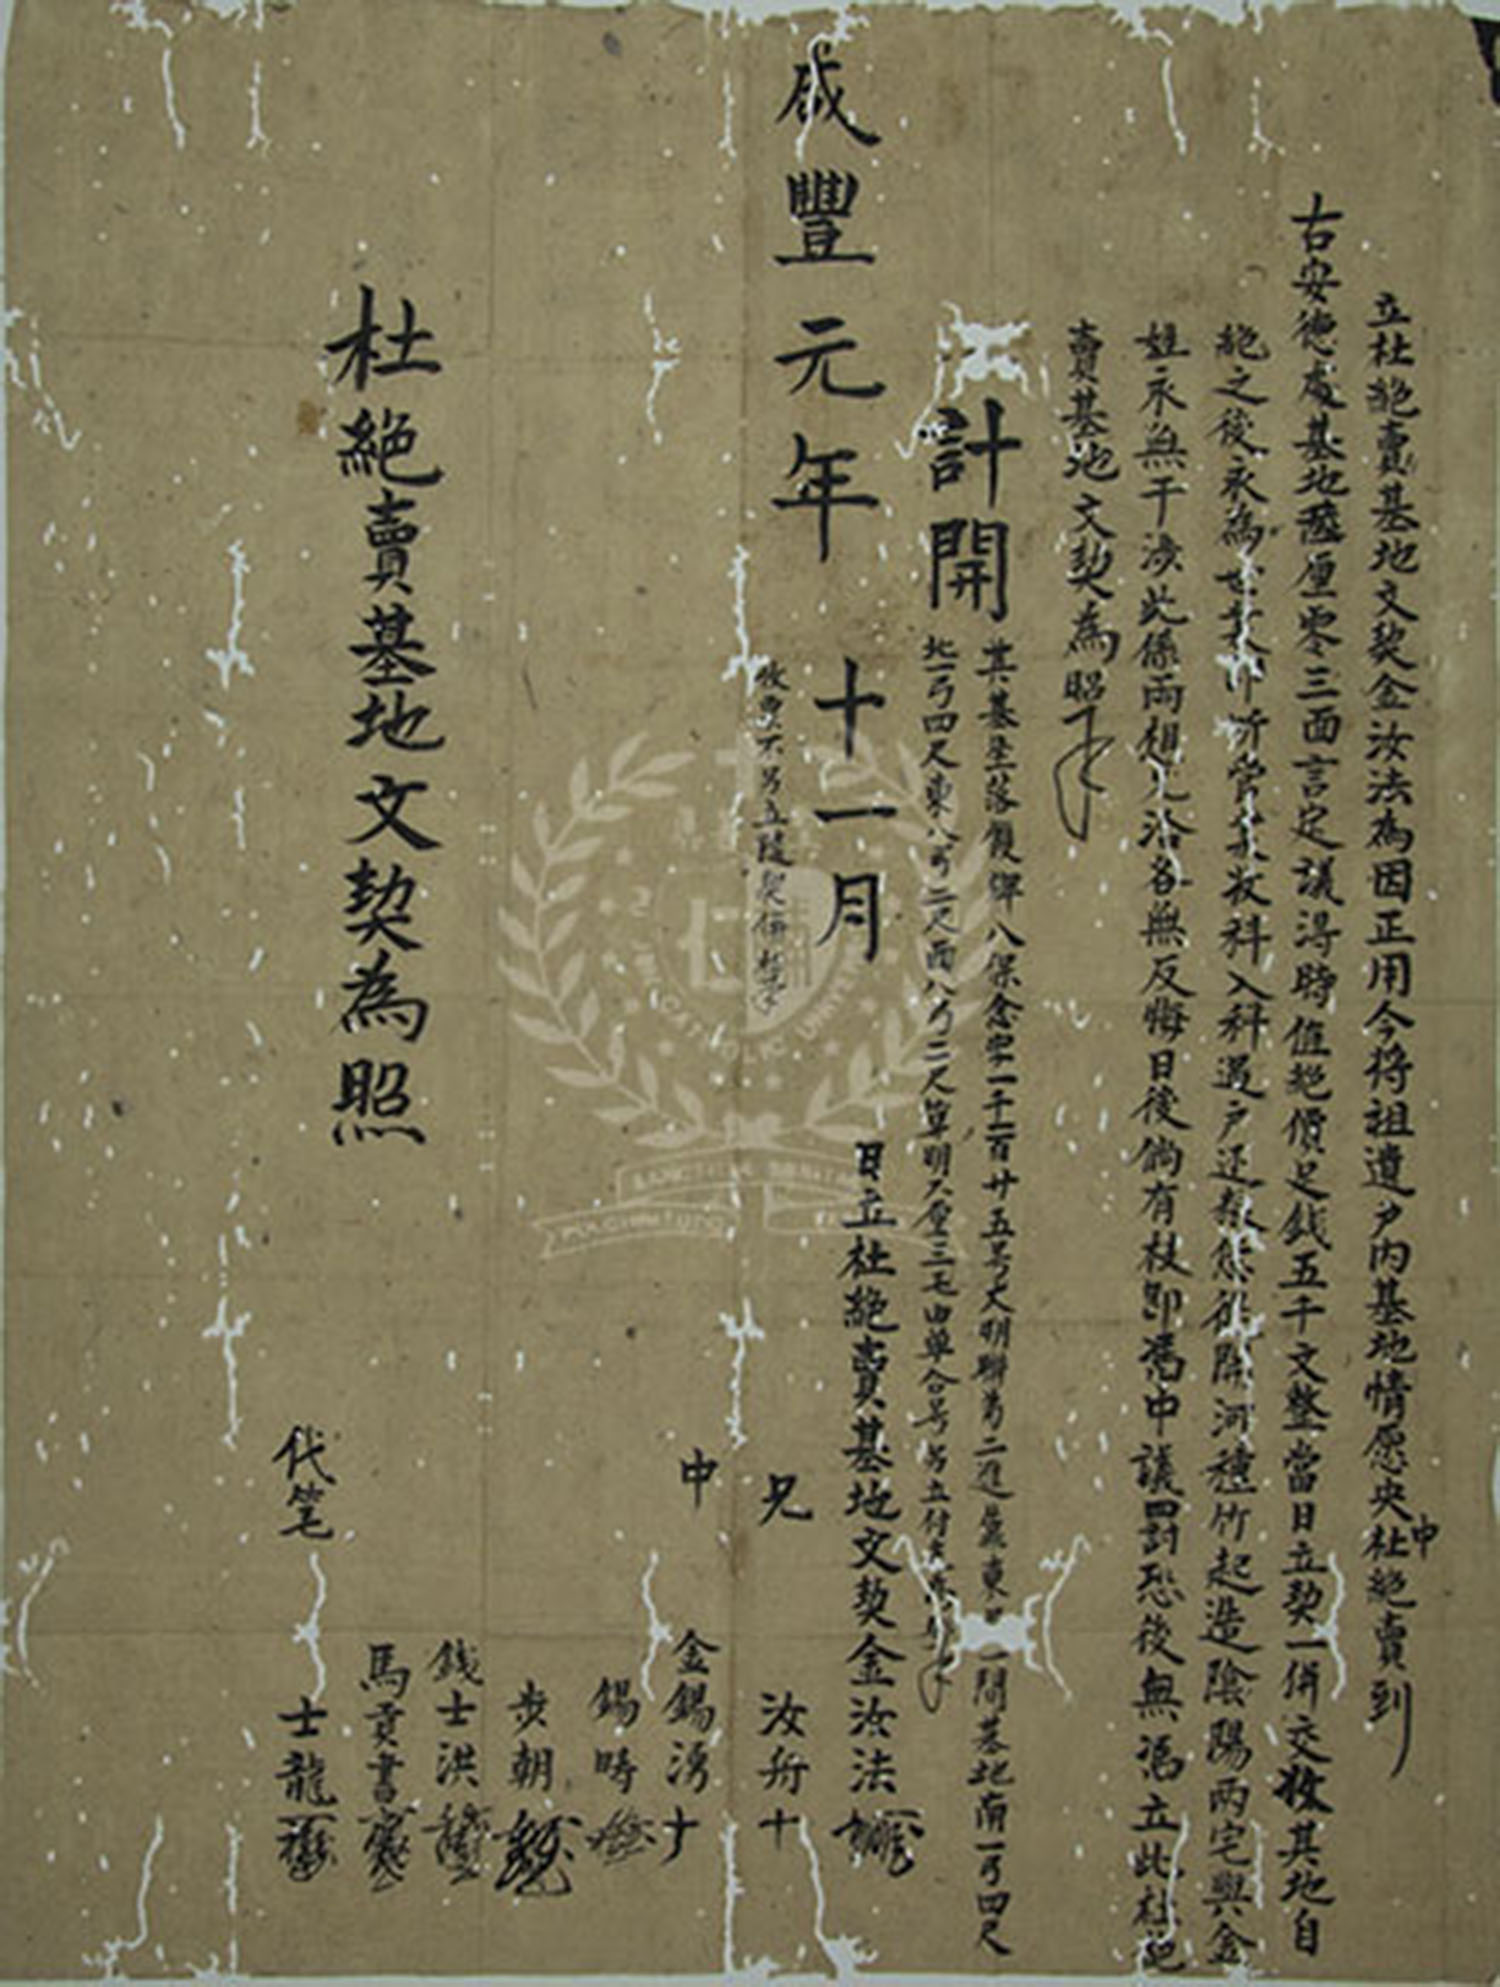 立杜絕賣基地文契金汝法為因正用今將祖遺戶內基地情愿央中杜絕賣到
古安德處基地陸厘零三面言定議得時值絕價足錢五千文整當日立契一併交收其地自
絕之後永為 管業收科入科過戶还粮 開河種竹起造陰陽兩宅與金
姓永無干涉此係兩相 洽各無反悔日後倘有杖即憑中議罰恐後無憑立此杜絕
賣基地文契為照
計開
其基坐落 八保念字一千一百廿五号 二進 東 一間基地南一弓四尺
北一弓四尺東八弓二尺西八弓二尺算明六厘三毛由單合号另立付
咸豐元年十一月 日立杜絕賣基地文契金汝法
收票不另立隨契併
兄 汝舟 十
中 金錫湧 十
錫時
步朝
錢士洪
馬貢書
代笔 士龍
杜絕賣基地文契為照